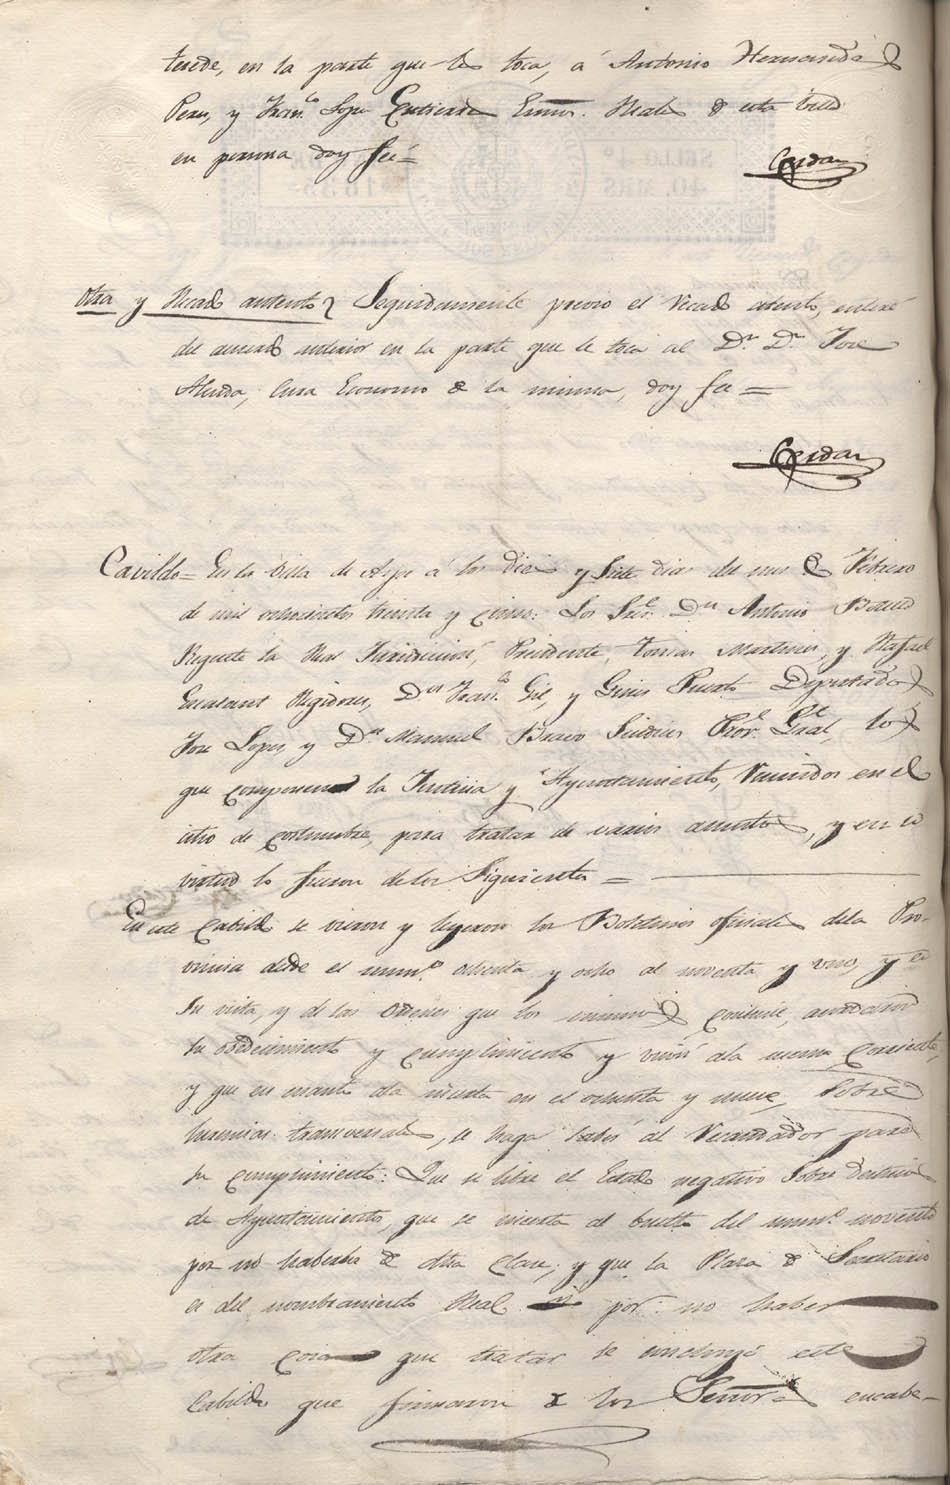 tecede, en la parte que les toca, á Antonio Hernandez
Perez, y Fran.co Lopez Gutierrez Essnos. Reales de esta Villa
en persona doy feé =
Cerdan
otra y Recado autento Seguidamente previo el recado atento, enteré
del acuerdo anterior en la parte que le toca al Dr. Dn. Jose
Cura Economo de la misma, doy feé =
Cerdan
Cavildo = En la Villa de Aspe á los diez y siete dias del mes de Febrero
de mil ochocientos treinta y cinco: Los Sres. Dn. Antonio
Regente la Real Jurisdiccion, Presidente, Tomas Martinez, y Rafael
Regidores, Dn. Fran.co Gil, y Gines Puerto Diputados
Jose Lopez, y Dn. Manuel Bravo Sindico Pror. Gral, los
que componen la Justicia y Ayuntamiento, reunidos en el
sitio de costumbre, para tratar de varios asuntos, y en su
virtud lo fueron de los Siguientes =
En este Cabildo se vieron y leyeron los Boletines oficiales dela Pro-
vincia desde el num.o ochenta y ocho al noventa y uno, y en
su vista, y de las ordenes que los mismos contiene, acordaron
su obedecimiento y cumplimiento y unir ala cuenta corriente,
y que en cuanto ala inserta en el ochenta y nueve, sobre
herencias transversales, se haga saber al Recaudador para
su cumplimiento: Que se libre el Estado negativo sobre destinos
de Ayuntamiento, que se inserta al buelto del num.o noventa
por no haberlos de otra clase; y que la Plaza de Secretario
es del nombramiento Real y por no haber
otra cosa que tratar se concluyó este
Cabildo que firmaron de los Señores encabe-